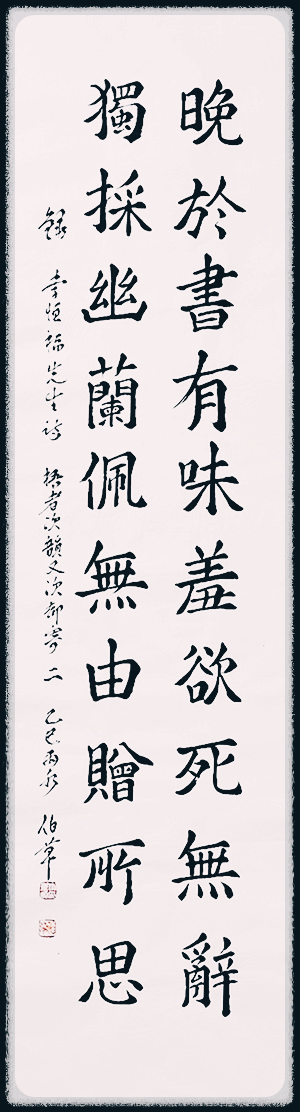 晚於書有味羞欲死無辭
獨採幽蘭佩無由贈所思
錄 李恒福先生詩 梧老次韻又次却寄 二 乙巳雨水 伯華